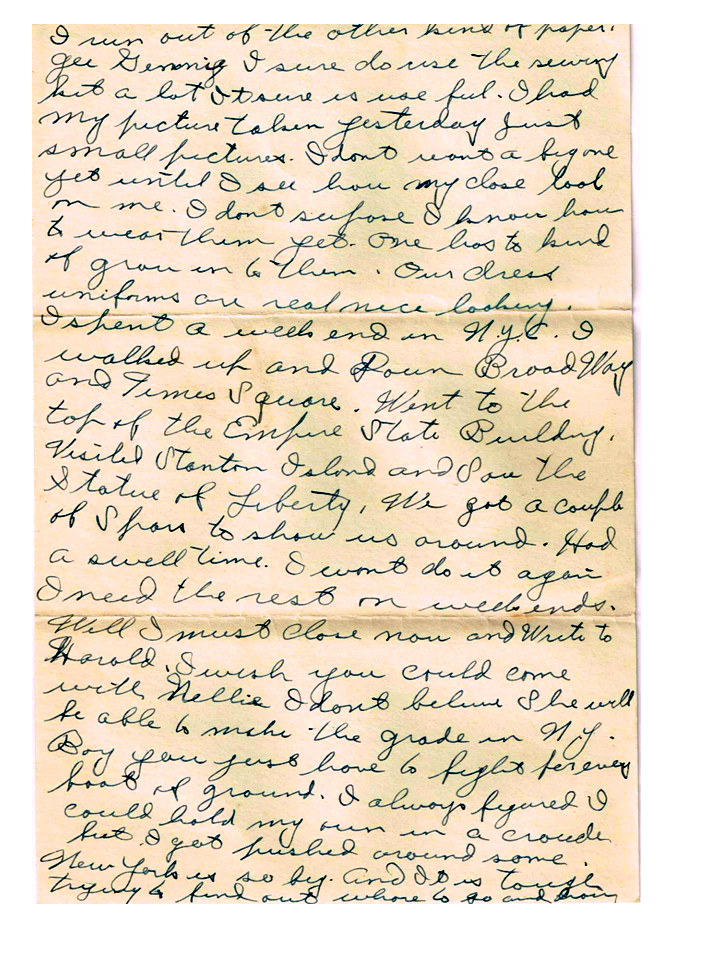 I run out of the other kind of paper.
gee Gennie I sure do use the sewing
kit a lot It sure is use ful. I had
my picture taken yesterday Just
small pictures. I dont want a big one
yet until I see how my close look
on me. I dont supose I know how
to wear them yet. One has to kind
of grow in to them. Our dress
uniforms are real nice looking.
I spent a week end in N.Y.C. I
walked up and Down Broad Way
and Times Square. Went to the
top of the Empire State Building.
Visited Stanton Island and Saw the
Statue of Liberty. We got a couple
of Spars to show us around. Had
a swell time. I wont do it again
I need the rest on weekends.
Well I must close now and Write to
Harold. I wish you could come
with Nellie I dont believe She will
be able to make the grade in N.Y.
Boy you just have to fight for every
foot of ground. I always figured I
could hold my own in a croude
but I got pushed around some.
New York is so big. And It is tough
trying to find out where to go and